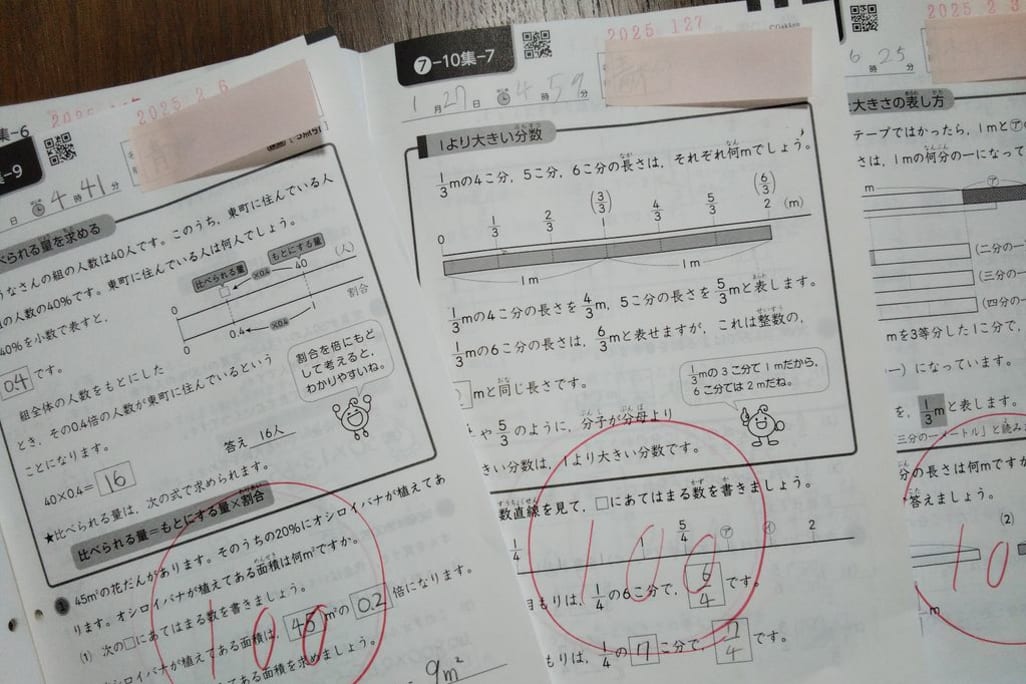 集-6
集-9
2025 2 6
日 4時41分
べられる量を求める
うなさんの組の人数は40人です。このうち、東町に住んでいる人
の人数の40%です。東町に住んでいる人は何人でしょう。
40%を小数で表すと、
0.4 です。
比べられる量
×0.4
もとにする量
40 (人)
0
割合
0
0.4
×0.4
1
組全体の人数をもとにした
とき、その0.4倍の人数が東町に住んでいるという
ことになります。
割合を倍にもど
して考えると、
わかりやすいね。
40×0.4= 16
答え 16人
★比べられる量は、次の式で求められます。
比べられる量=もとにする量×割合
1 45m²の花だんがあります。そのうちの20%にオシロイバナが植えてあ
ります。オシロイバナが植えてある面積は何m²ですか。
(1) 次の□にあてはまる数を書きましょう。
オシロイバナが植えてある面積は、45 m²の 0.2 倍になります。
てある面積を求めましょう。
9m²
100
7-10集-7
2025 1 27
1月27日 4時59分
1より大きい分数
1/3mの4こ分、5こ分、6こ分の長さは、それぞれ何mでしょう。
0 1/3 2/3 (3/3) 1 4/3 5/3 (6/3) 2 (m)
1m 1m
1/3mの4こ分の長さを4/3m、5こ分の長さを5/3mと表します。
1/3mの6こ分の長さは、6/3mと表せますが、これは整数の、
mと同じ長さです。
1/3mの3こ分で1mだから、
6こ分では2mだね。
や5/3のように、分子が分母より
きい分数は、1より大きい分数です。
数直線を見て、□にあてはまる数を書きましょう。
1/4 1 5/4 ㋐ ㋑ 2
もりは、1/4の6こ分で、6/4です。
もりは、1/4の 7 こ分で、7/4です。
100
2025 2 3
6時25分
大きさの表し方
テープではかったら、1mと㋐
さは、1mの何分の一になって
m
㋐
(二分の一
(三分の一
(四分の一
mを3等分した1こ分で、
一)になっています。
を、1/3mと表します。
三分の一メートル」と読み
分の長さは何mですか
答えましょう。
(2)
m
10